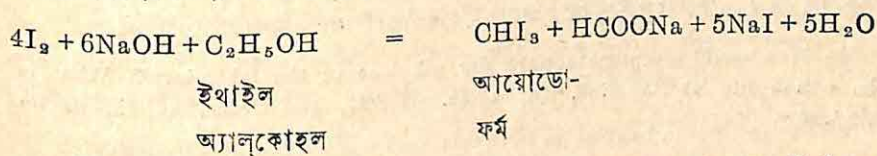 4I₂ + 6NaOH + C₂H₅OH = CHI₃ + HCOONa + 5NaI + 5H₂O
ইথাইল আয়োডো-
অ্যাল্‌কোহল ফর্ম